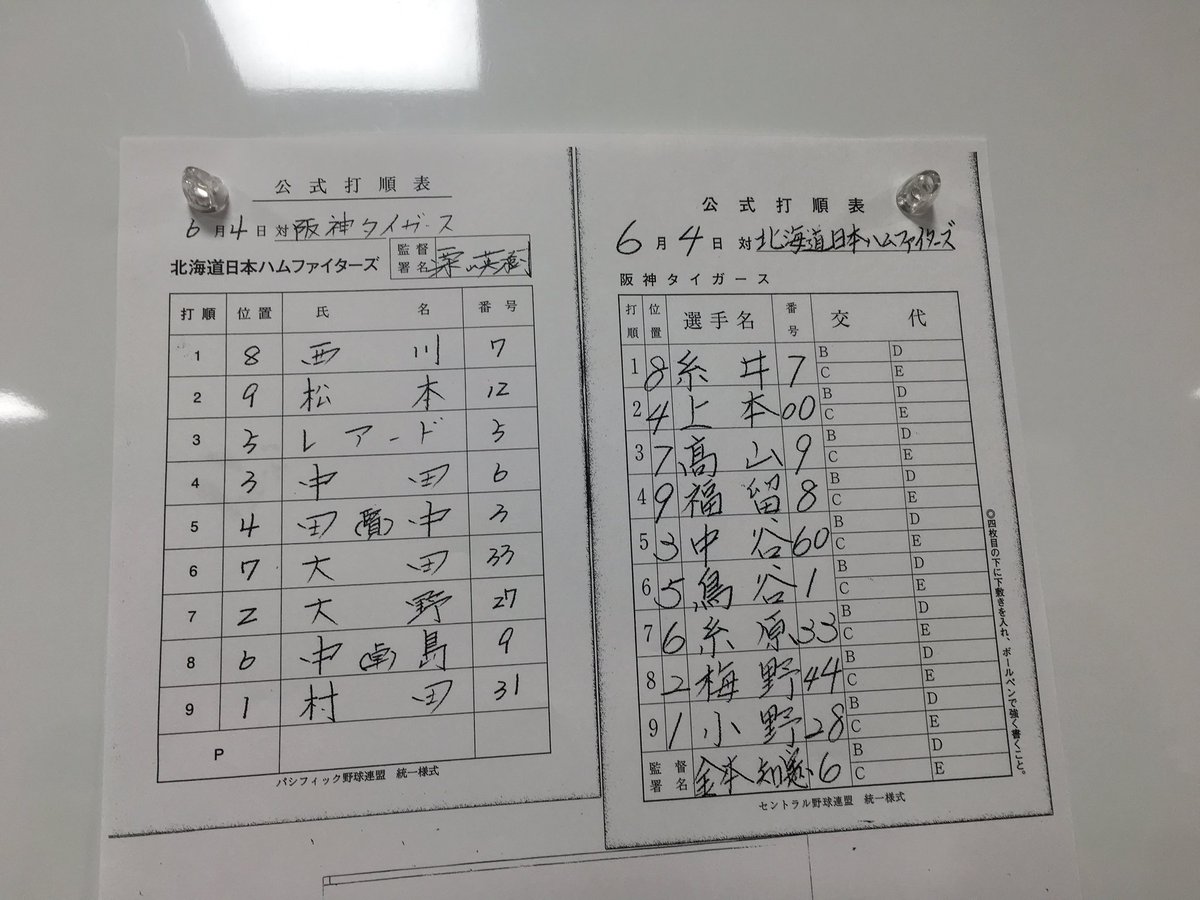 公式打順表
6月4日対阪神タイガース
北海道日本ハムファイターズ 監督署名 栗山英樹
打順 位置 氏名 番号
1 8 西川 7
2 9 松本 12
3 5 レアード 5
4 3 中田 6
5 4 田(賢)中 3
6 7 大田 33
7 2 大野 27
8 6 中(卓)島 9
9 1 村田 31
P
パシフィック野球連盟 統一様式
公式打順表
6月4日対北海道日本ハムファイターズ
阪神タイガース
打順 位置 選手名 番号 交代
1 8 糸井 7 B D C E
2 4 上本 00 B D C E
3 7 高山 9 B D C E
4 9 福留 8 B D C E
5 3 中谷 60 B D C E
6 5 鳥谷 1 B D C E
7 6 糸原 33 B D C E
8 2 梅野 44 B D C E
9 1 小野 28 B D C E
監督署名 金本知憲 6 B D C E
セントラル野球連盟 統一様式
◎四枚目の下に下敷きを入れ、ボールペンで強く書くこと。